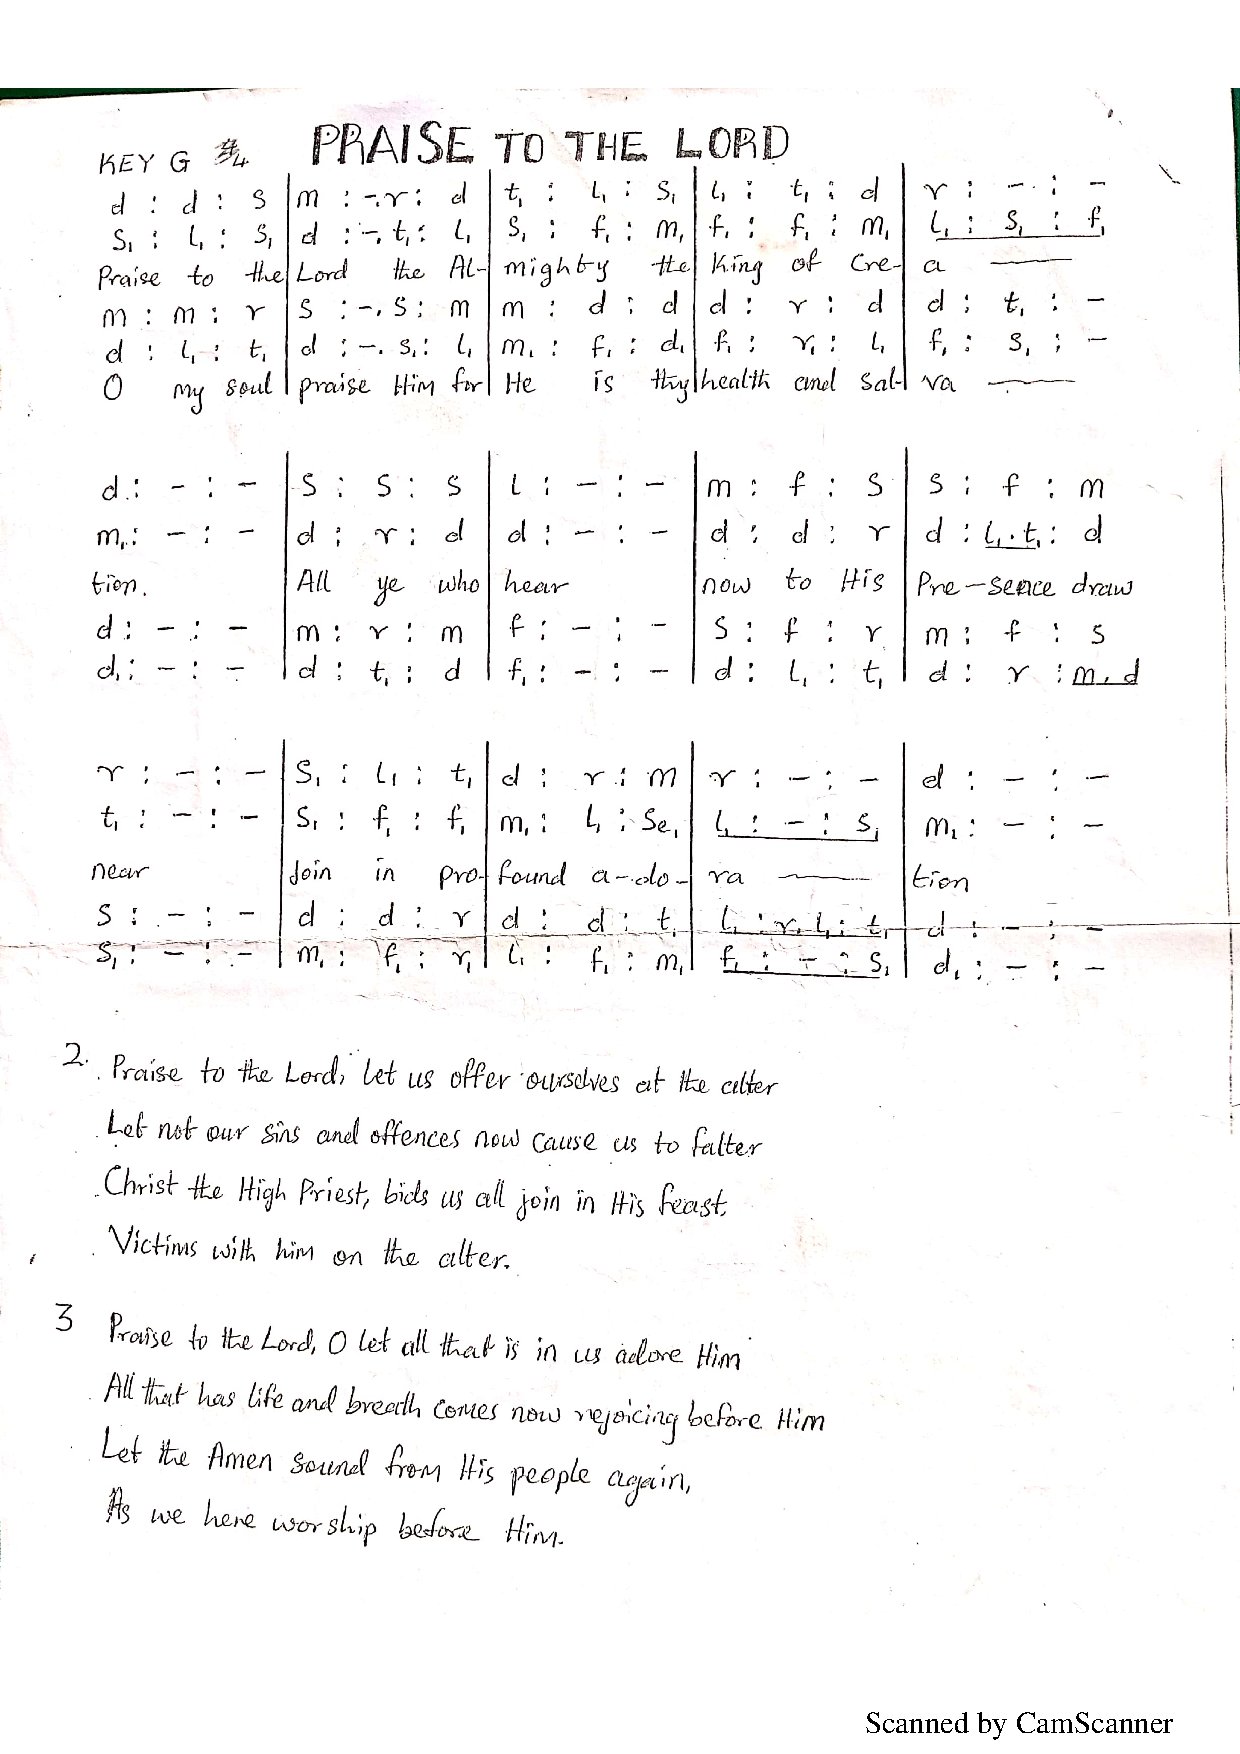 PRAISE TO THE LORD
KEY G 3/4
d : d : s | m : -.r : d | t₁ : l₁ : s₁ | l₁ : t₁ : d | r : - : -
s₁ : l₁ : s₁ | d : -.t₁ : l₁ | s₁ : f₁ : m₁ | f₁ : f₁ : m₁ | l₁ : s₁ : f₁
Praise to the | Lord the Al- | mighty the | King of Cre- | a —
m : m : r | s : -.s : m | m : d : d | d : r : d | d : t₁ : -
d : l₁ : t₁ | d : -.s₁ : l₁ | m₁ : f₁ : d₁ | f₁ : r₁ : l₁ | f₁ : s₁ : -
O my soul | praise Him for | He is thy | health and sal- | va —
d : - : - | s : s : s | l : - : - | m : f : s | s : f : m
m₁ : - : - | d : r : d | d : - : - | d : d : r | d : l₁.t₁ : d
tion. | All ye who | hear | now to His | Pre-sence draw
d : - : - | m : r : m | f : - : - | s : f : r | m : f : s
d₁ : - : - | d : t₁ : d | f₁ : - : - | d : l₁ : t₁ | d : r : m.d
r : - : - | s₁ : l₁ : t₁ | d : r : m | r : - : - | d : - : -
t₁ : - : - | s₁ : f₁ : f₁ | m₁ : l₁ : se₁ | l₁ : - : s₁ | m₁ : - : -
near | Join in pro- | found a-do- | ra — | tion
s : - : - | d : d : r | d : d : t₁ | l₁ : r.l₁ : t₁ | d : - : -
s₁ : - : - | m₁ : f₁ : r₁ | l₁ : f₁ : m₁ | f₁ : - : s₁ | d₁ : - : -
2. Praise to the Lord, let us offer ourselves at the alter
Let not our sins and offences now cause us to falter
Christ the High Priest, bids us all join in His feast,
Victims with him on the alter.
3 Praise to the Lord, O let all that is in us adore Him
All that has life and breath comes now rejoicing before Him
Let the Amen sound from His people again,
As we here worship before Him.
Scanned by CamScanner